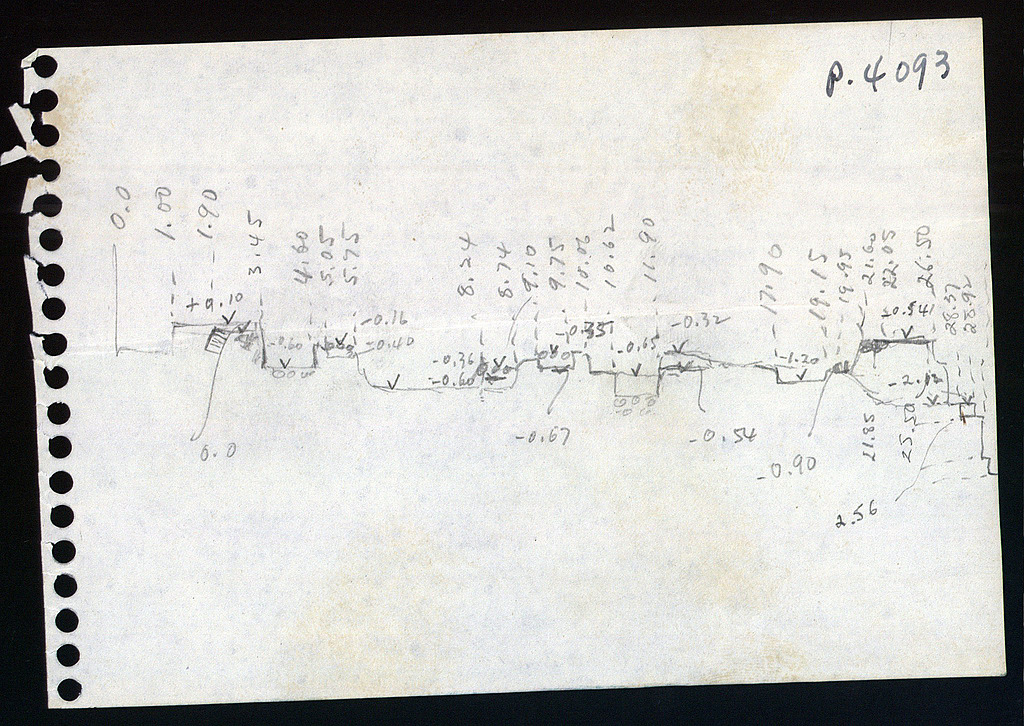 P.4093
0.0
1.00
1.90
3.45
4.80
5.05
5.75
8.24
8.74
9.10
9.75
10.06
10.62
11.90
17.90
19.15
19.95
21.60
22.05
26.50
28.37
28.92
+0.10
-0.60
-0.16
-0.40
-0.36
-0.60
-0.65
-0.32
-1.20
-0.54
0.0
-0.67
-0.54
-0.90
21.85
25.50
2.56